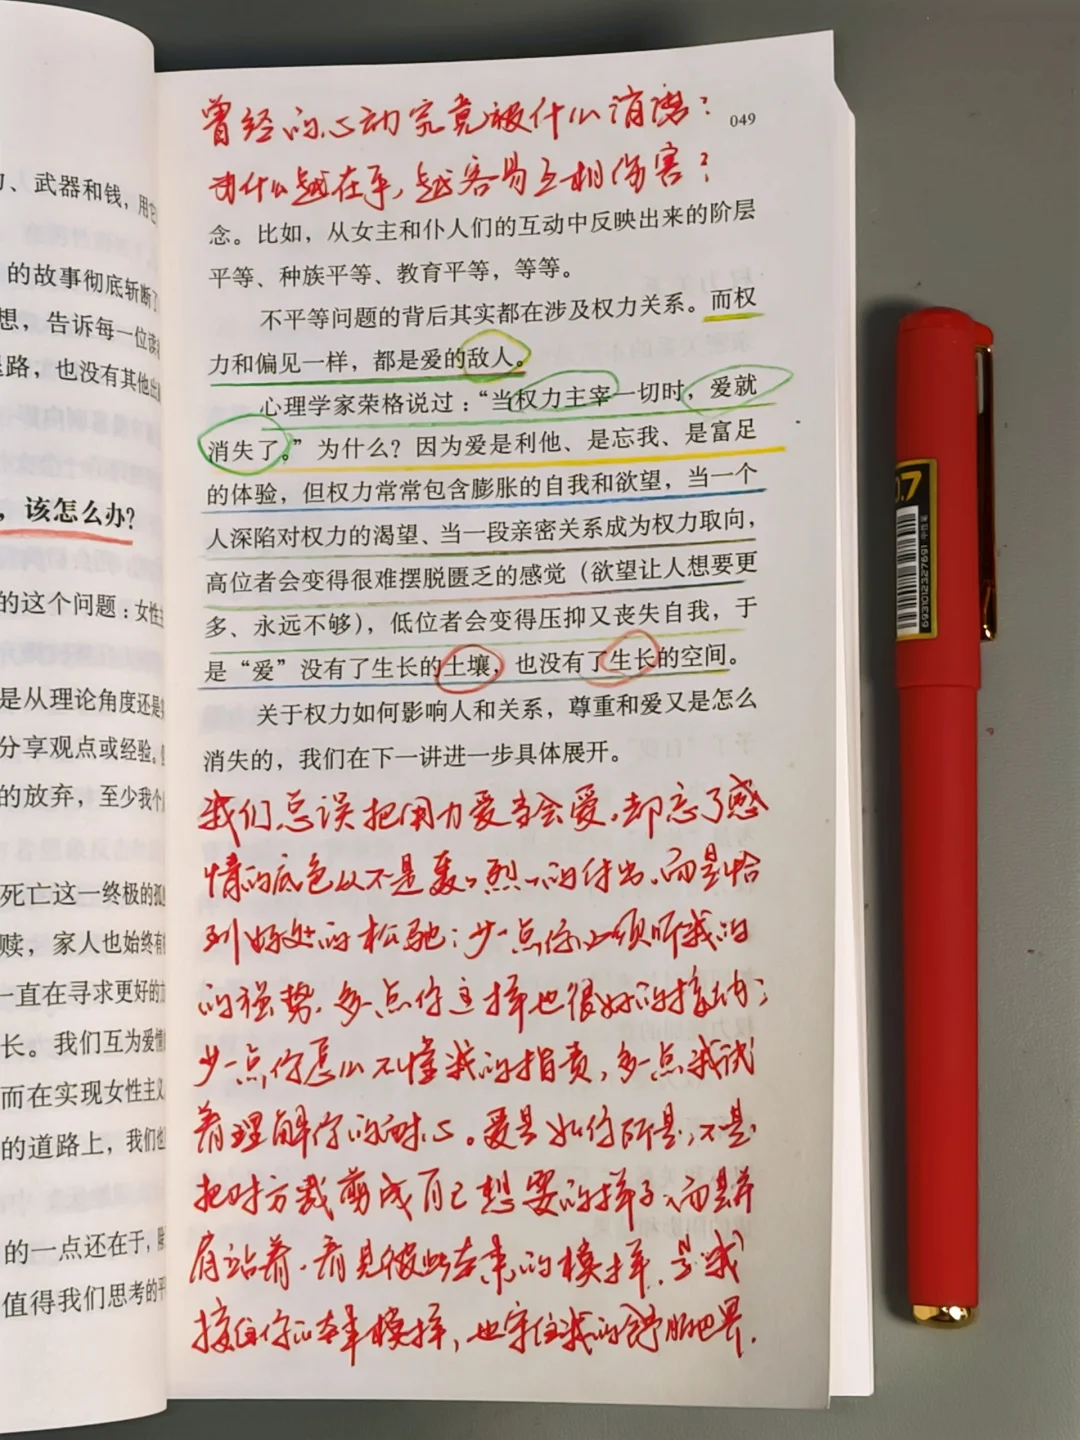 、武器和钱，用它
的故事彻底斩断了
想，告诉每一位读
路，也没有其他出
，该怎么办？
的这个问题：女性主
是从理论角度还是
分享观点或经验。
的放弃，至少我个
死亡这一终极的孤
赎，家人也始终有
一直在寻求更好的
长。我们互为爱情
而在实现女性主义
的道路上，我们也
的一点还在于，
值得我们思考的平
曾经的心动究竟被什么消磨？
049
为什么越在乎，越容易互相伤害？
念。比如，从女主和仆人们的互动中反映出来的阶层
平等、种族平等、教育平等，等等。
不平等问题的背后其实都在涉及权力关系。而权
力和偏见一样，都是爱的敌人。
心理学家荣格说过：“当权力主宰一切时，爱就
消失了。”为什么？因为爱是利他、是忘我、是富足
的体验，但权力常常包含膨胀的自我和欲望，当一个
人深陷对权力的渴望、当一段亲密关系成为权力取向，
高位者会变得很难摆脱匮乏的感觉（欲望让人想要更
多、永远不够），低位者会变得压抑又丧失自我，于
是“爱”没有了生长的土壤，也没有了生长的空间。
关于权力如何影响人和关系，尊重和爱又是怎么
消失的，我们在下一讲进一步具体展开。
我们总误把用力爱当会爱，却忘了感
情的底色从不是轰轰烈烈的付出，而是恰
到好处的松弛：少一点你必须听我的
的强势，多一点你这样也很好的接纳；
少一点你怎么不懂我的指责，多一点我试
着理解你的耐心。爱是如你所是，不是
把对方裁剪成自己想要的样子，而是并
肩站着，看见彼此本来的模样，是我
接住你的本来模样，也守住我的舒服边界.
0.7
6930232327691